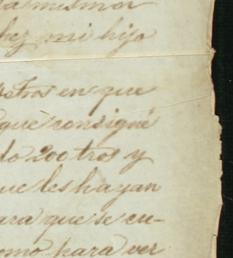 la misma
hez, mi hijo
letras en que
que consigné
do 200 tros y
ue les hayan
ara que se cu-
omo para ver